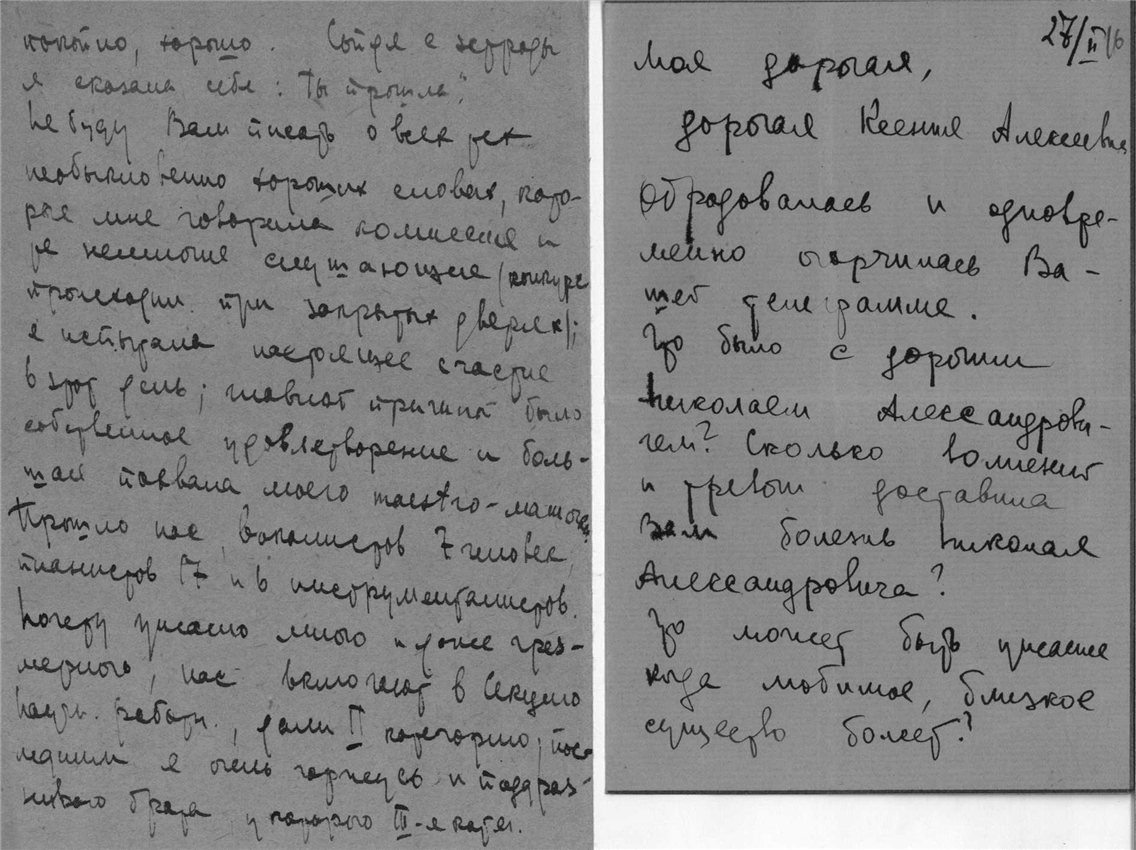 покойно, хорошо. Сойдя с эстрады
я сказала себе: "Ты прошла".
Не буду Вам писать о всех тех
необыкновенно хороших словах, кото-
рые мне говорила комиссия и
те немногие слушающие (конкурс
происходил при закрытых дверях);
я испытала настоящее счастие
в этот день; главной причиной было
собственное удовлетворение и боль-
шая похвала моего maestro-мамочки
Прошло нас, вокалистов 7 человек,
пианистов 17 и 6 инструменталистов.
Почету ужасно много и даже чрез-
мерного, нас включают в Секцию
Научн. Работн., дали II категорию, пос-
ледним я очень горжусь и поддраз-
ниваю брата у которого III-я катег.
27/II
Моя дорогая,
дорогая Ксения Алексеевна
Обрадовалась и одновре-
менно огорчилась Ва-
шей телеграмме.
Что было с дорогим
Николаем Александрови-
чем? Сколько волнений
и тревог доставила
Вам болезнь Николая
Александровича?
Что может быть ужаснее
когда любимое, близкое
существо болеет?